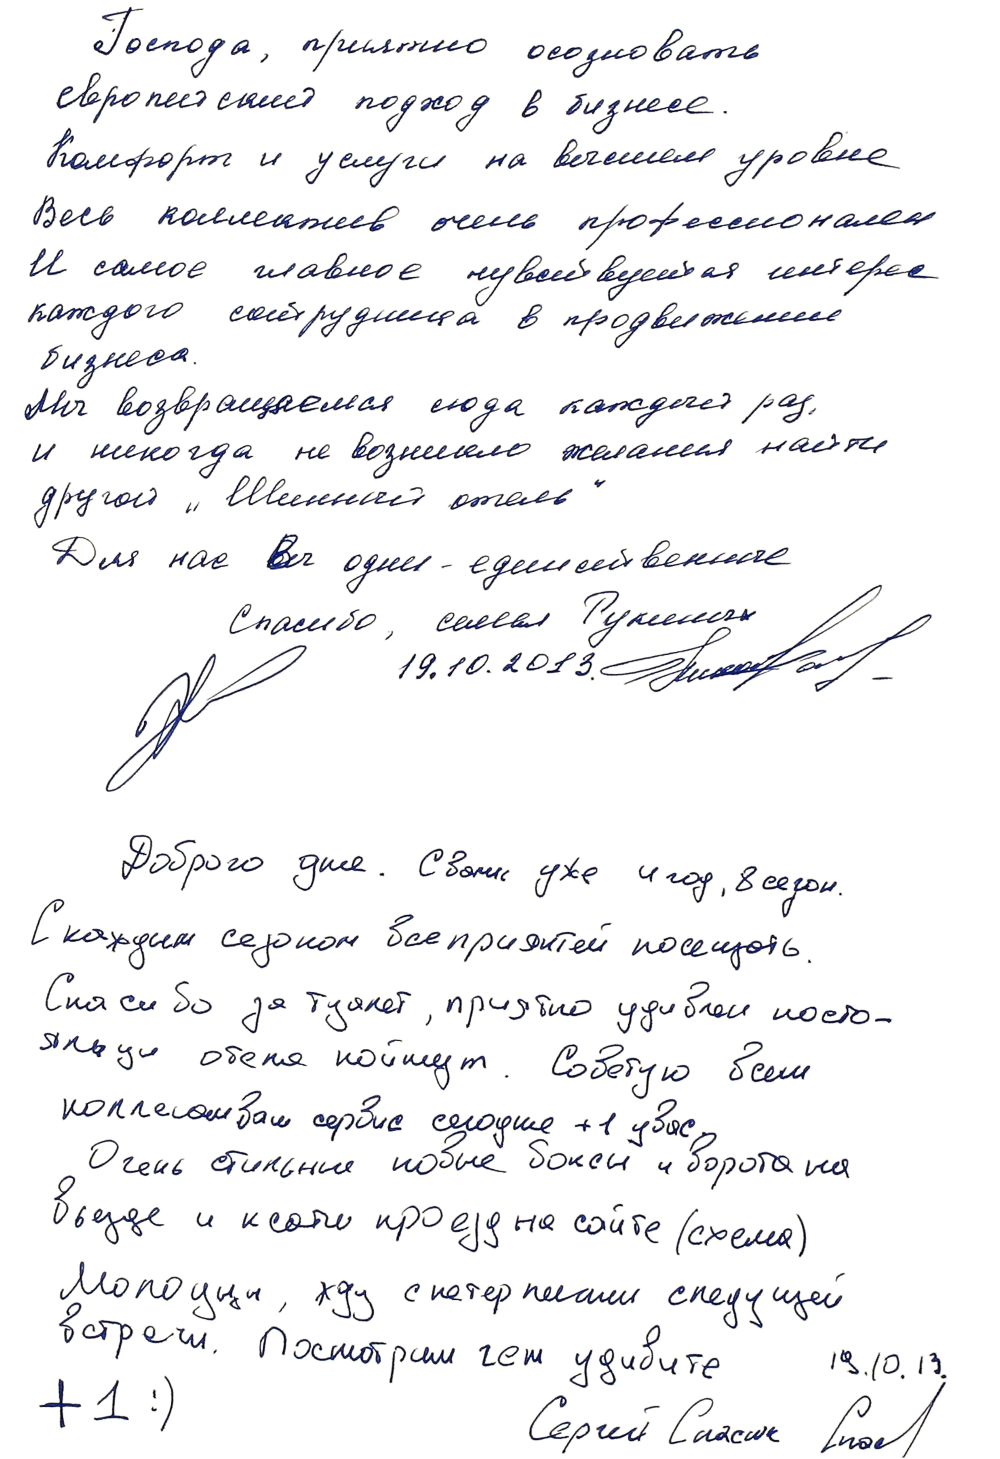 Господа, приятно осозновать
европейский подход в бизнесе.
Комфорт и услуги на высшем уровне
Весь коллектив очень профессионален
И самое главное чувствуется интерес
каждого сотрудника в продвижении
бизнеса.
Мы возвращаемся сюда каждый раз,
и никогда не возникло желания найти
другой „Шинный отель“
Для нас Вы одни-единственные
Спасибо, семья
19.10.2013.
Доброго дня. С Вами уже 4 год, 8 сезон.
С каждым сезоном все приятней посещать.
Спасибо за туалет, приятно удивлен посто-
яльцы отеля поймут. Советую всем
коллегам вам сервис сегодня +1 у вас.
Очень стильные новые боксы и ворота на
въезде и кстати проезд на сайте (схема)
Молодцы, жду с нетерпением следущей
встречи. Посмотрим чем удивите
19.10.13.
+1 :)
Сергей